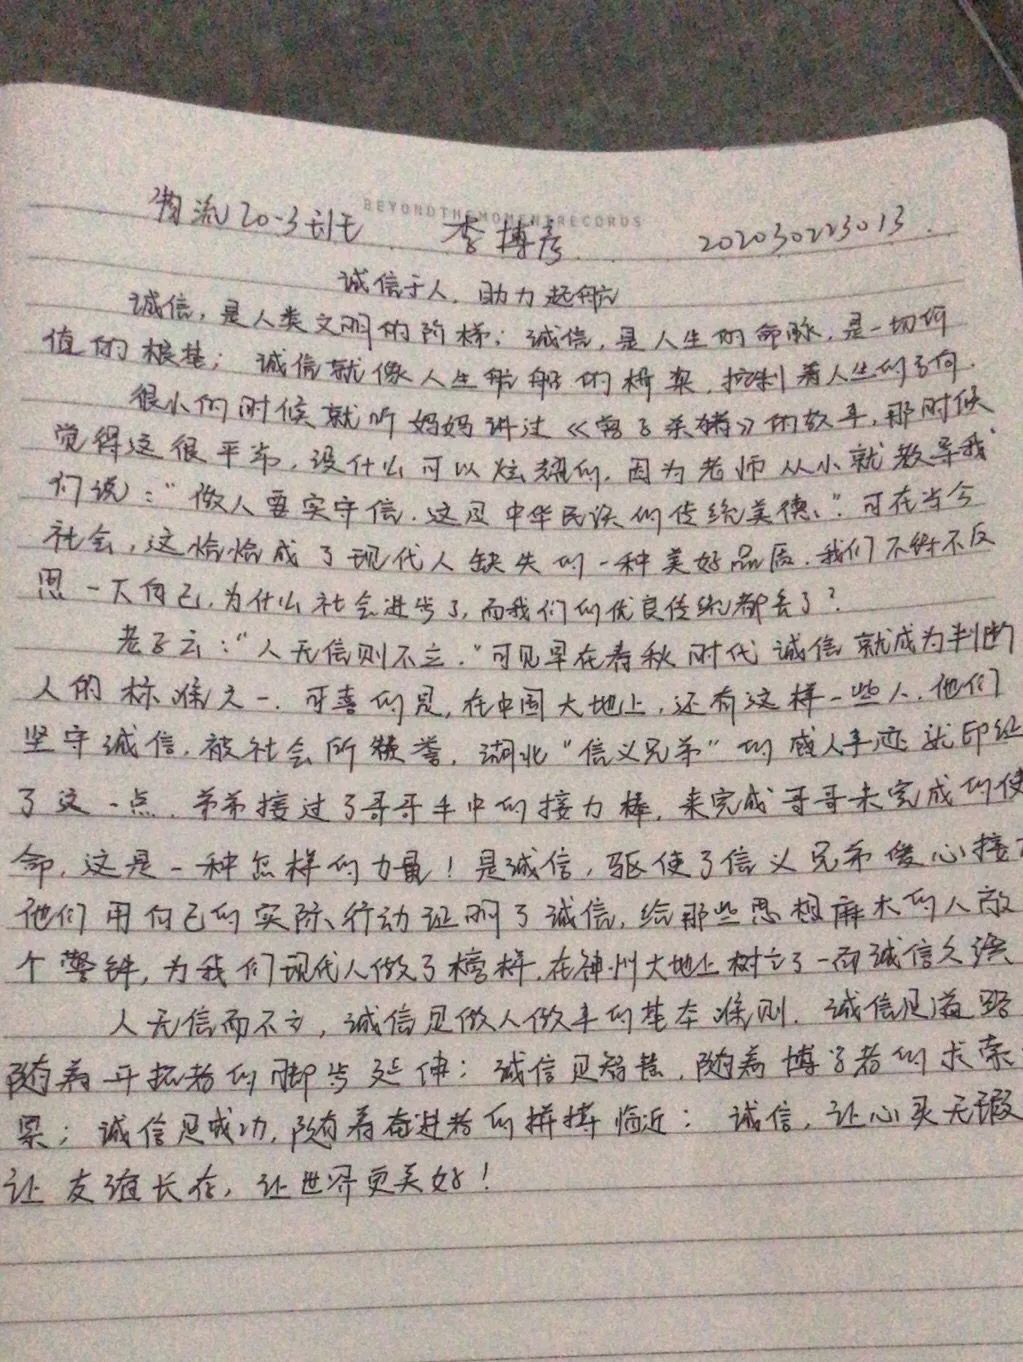 BEYONDTHEMOMENTRECORDS
物流20-3班 李博彦 202030223013.
诚信于人,助力起航
诚信,是人类文明的阶梯;诚信,是人生的命脉,是一切价
值的根基;诚信就像人生航船的桥梁,控制着人生的方向.
很小的时候就听妈妈讲过《曾子杀猪》的故事,那时候
觉得这很平常,没什么可以炫耀的,因为老师从小就教导我
们说:“做人要实守信,这是中华民族的传统美德、”可在当今
社会,这恰恰成了现代人缺失的一种美好品质,我们不得不反
思一下自己,为什么社会进步了,而我们的优良传统都丢了?
老子云:“人无信则不立.”可见早在春秋时代诚信就成为判断
人的标准之一.可喜的是,在中国大地上,还有这样一些人,他们
坚守诚信,被社会所赞誉,湖北“信义兄弟”的感人事迹就印证
了这一点,弟弟接过了哥哥手中的接力棒,来完成哥哥未完成的使
命,这是一种怎样的力量!是诚信,驱使了信义兄弟爱心接
他们用自己的实际行动证明了诚信,给那些思想麻木的人敲
个警钟,为我们现代人做了榜样,在神州大地上树立了一面诚信
人无信而不立,诚信是做人做事的基本准则.诚信是道路
随着开拓者的脚步延伸;诚信是智慧,随着博学者的求索
累;诚信是成功,随着奋进者的拼搏临近;诚信,让心灵无瑕
让友谊长存,让世界更美好!